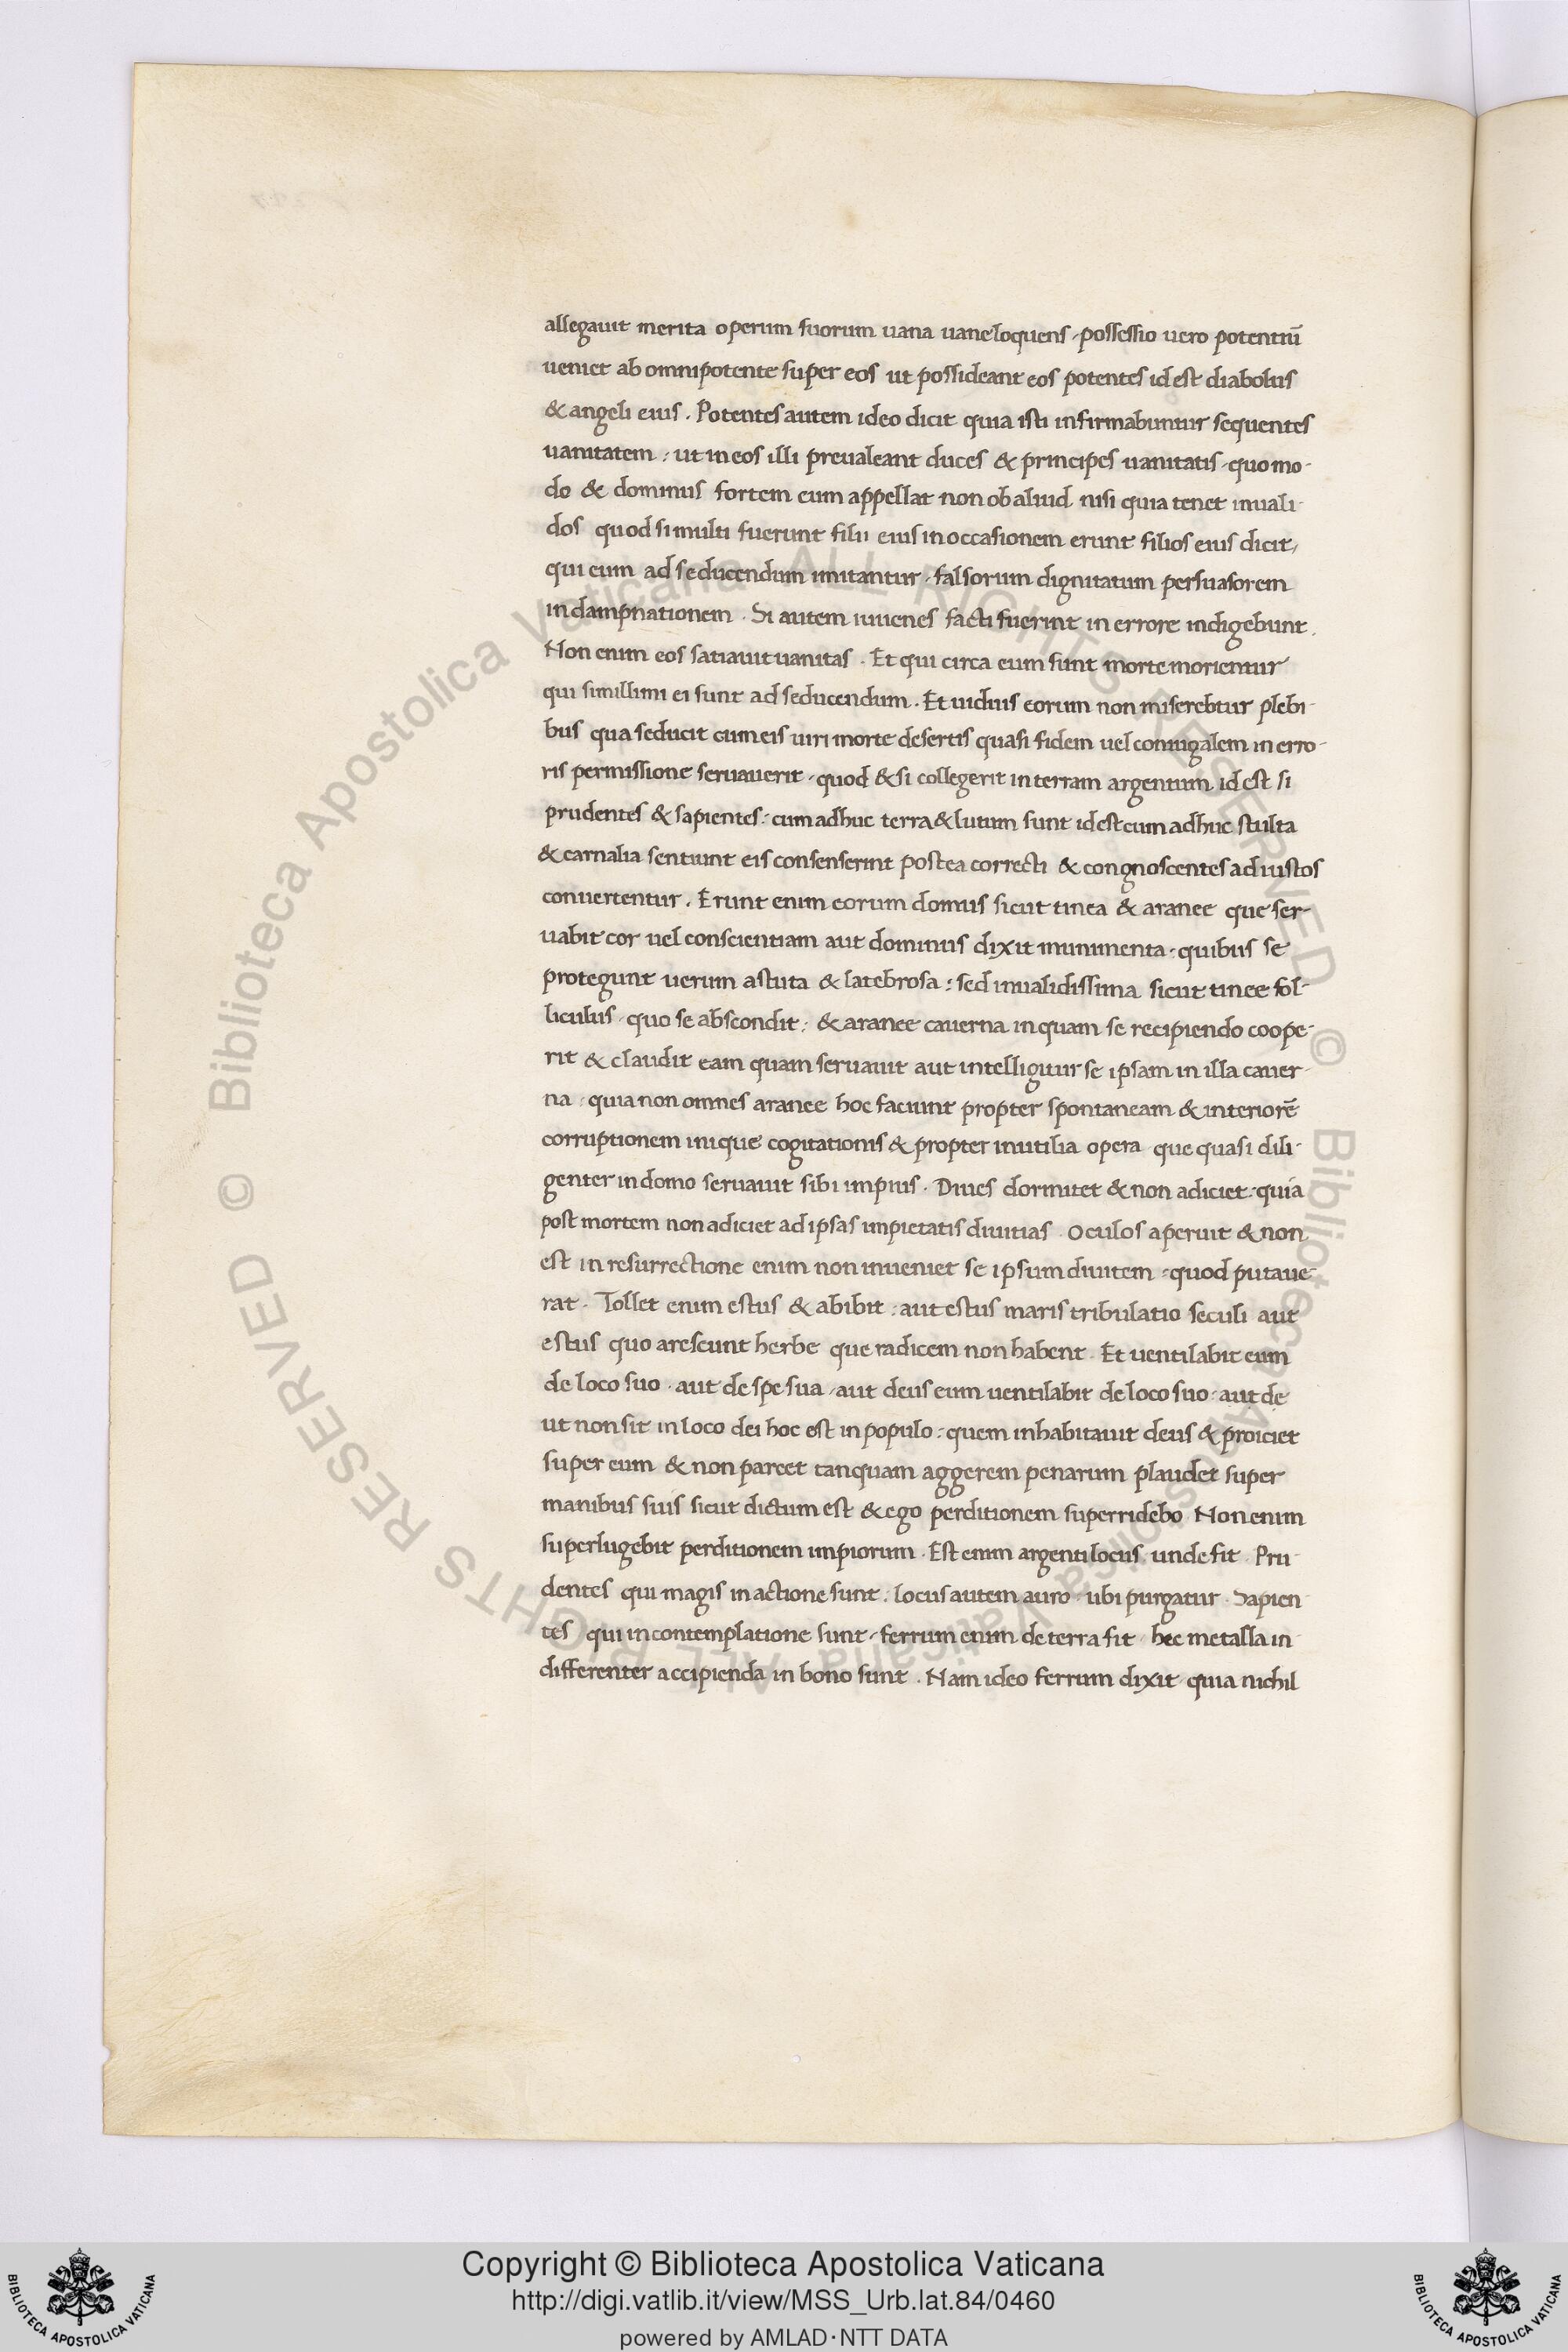 allegauit merita operum suorum uana uane loquens · possessio uero potentiū
ueniet ab omnipotente super eos ut possideant eos potentes id est diabolus
& angeli eius . Potentes autem ideo dicit quia isti infirmabuntur sequentes
uanitatem : ut in eos illi preualeant duces & principes uanitatis · quomo-
do & dominus fortem eum appellat non ob aliud nisi quia tenet inuali-
dos quod si multi fuerunt filii eius in occasionem erunt filios eius dicit,
qui eum ad seducendum imitantur · falsorum dignitatum persuasorem
in dampnationem . Si autem iuuenes facti fuerint in errore indigebunt .
Non enim eos satiauit uanitas . Et qui circa eum sunt morte morientur
qui simillimi ei sunt ad seducendum . Et uiduis eorum non miserebtur plebi-
bus qua seducit cum eis uiri morte desertis quasi fidem uel coniugalem in erro-
ris permissione seruauerit · quod & si collegerit in terram argentum id est si
prudentes & sapientes : cum adhuc terra & lutum sunt id est cum adhuc stulta
& carnalia sentiunt eis consenserint postea correcti & congnoscentes ad iustos
conuertentur . Erunt enim eorum domus sicut tinea & aranee que ser-
uabit cor uel conscientiam aut dominus dixit munimenta · quibus se
protegunt uerum astuta & latebrosa : sed inualidissima sicut tinee fol-
liculus · quo se abscondit : & aranee cauerna in quam se recipiendo coope-
rit & claudit eam quam seruauit aut intelligitur se ipsam in illa cauer-
na · quia non omnes aranee hoc faciunt propter spontaneam & interiorē
corruptionem inique cogitationis & propter inutilia opera que quasi dili-
genter in domo seruauit sibi impius . Diues dormitet & non adiciet : quia
post mortem non adiciet ad ipsas impietatis diuitias . Oculos aperuit & non
est in resurrectione enim non inueniet se ipsum diuitem · quod putaue-
rat . Tollet enim estus & abibit : aut estus maris tribulatio seculi aut
estus quo arescunt herbe que radicem non habent . Et uentilabit eum
de loco suo · aut de spe sua · aut deus eum uentilabit de loco suo · aut de
ut non sit in loco dei hoc est in populo : quem inhabitauit deus & proiciet
super eum & non parcet tanquam aggerem penarum plaudet super
manibus suis sicut dictum est & ego perditionem superridebo Non enim
superlugebit perditionem impiorum . Est enim argenti locus unde fit . Pru-
dentes qui magis in actione sunt : locus autem auro · ubi purgatur . Sapien-
tes qui in contemplatione sunt · ferrum enim de terra fit · hec metalla in-
differenter accipienda in bono sunt . Nam ideo ferrum dixit · quia nichil
© Biblioteca Apostolica Vaticana ALL RIGHTS RESERVED © Biblioteca Apostolica Vaticana ALL RIGHTS RESERVED
Copyright © Biblioteca Apostolica Vaticana
http://digi.vatlib.it/view/MSS_Urb.lat.84/0460
powered by AMLAD·NTT DATA
BIBLIOTECA APOSTOLICA VATICANA
BIBLIOTECA APOSTOLICA VATICANA